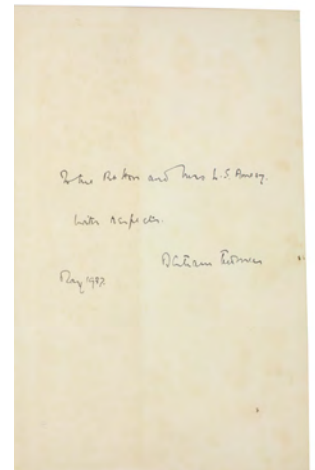 To the Rt Hon and Mrs L.S. Amery.
with respects.
William
May 1937